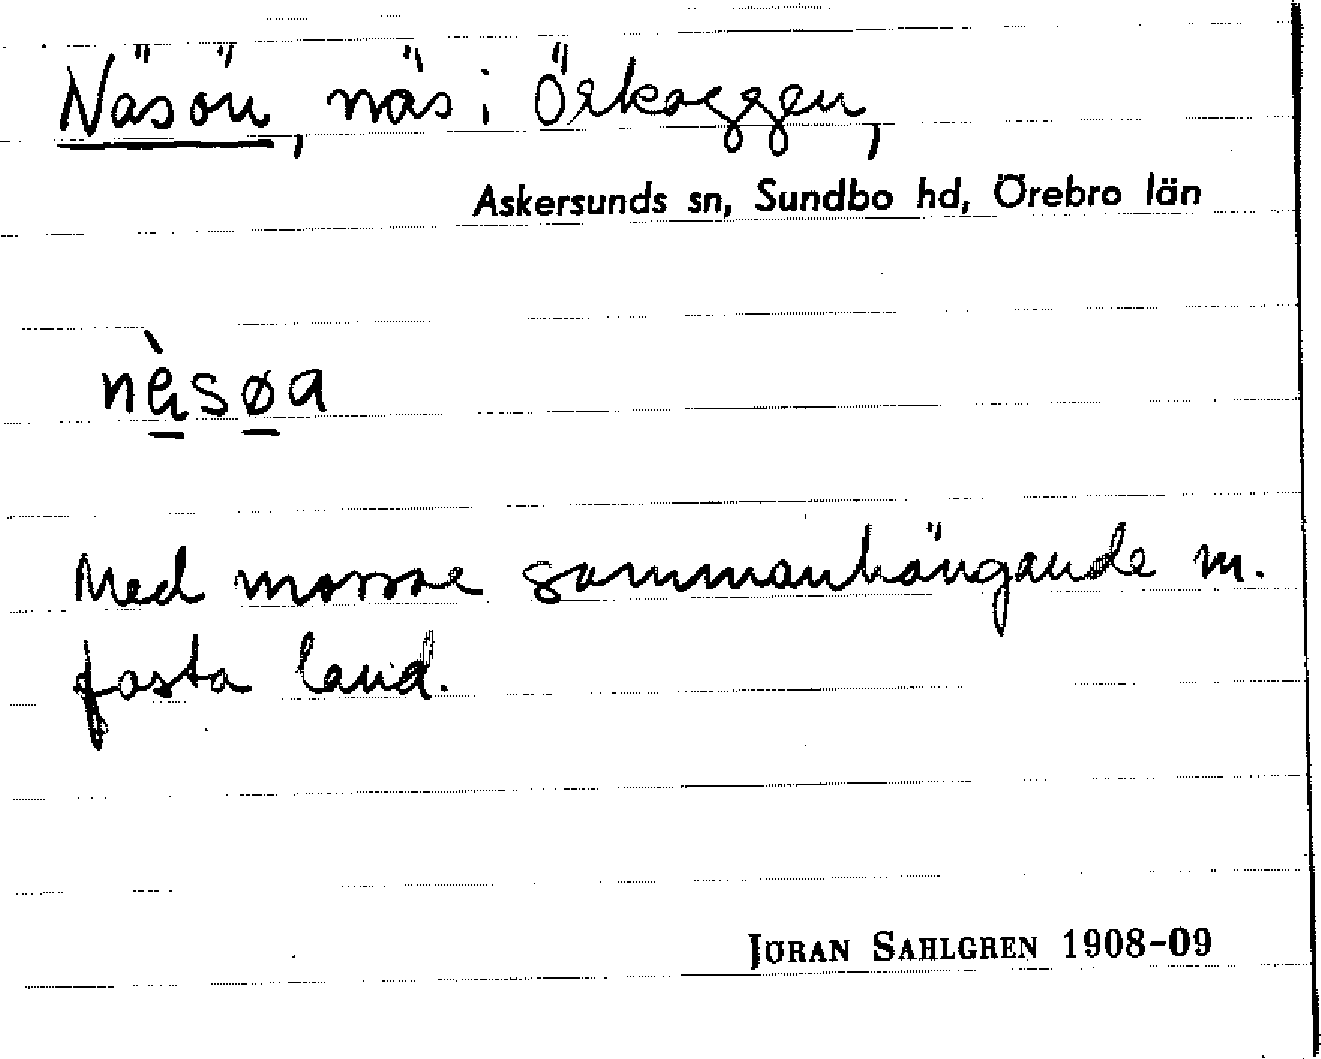 Näsön, näs i Örkaggen,
Askersunds sn, Sundbo hd, Örebro län
nèsøa
Med mosse sammanhängande m.
fasta land.
JÖRAN SAHLGREN 1908-09